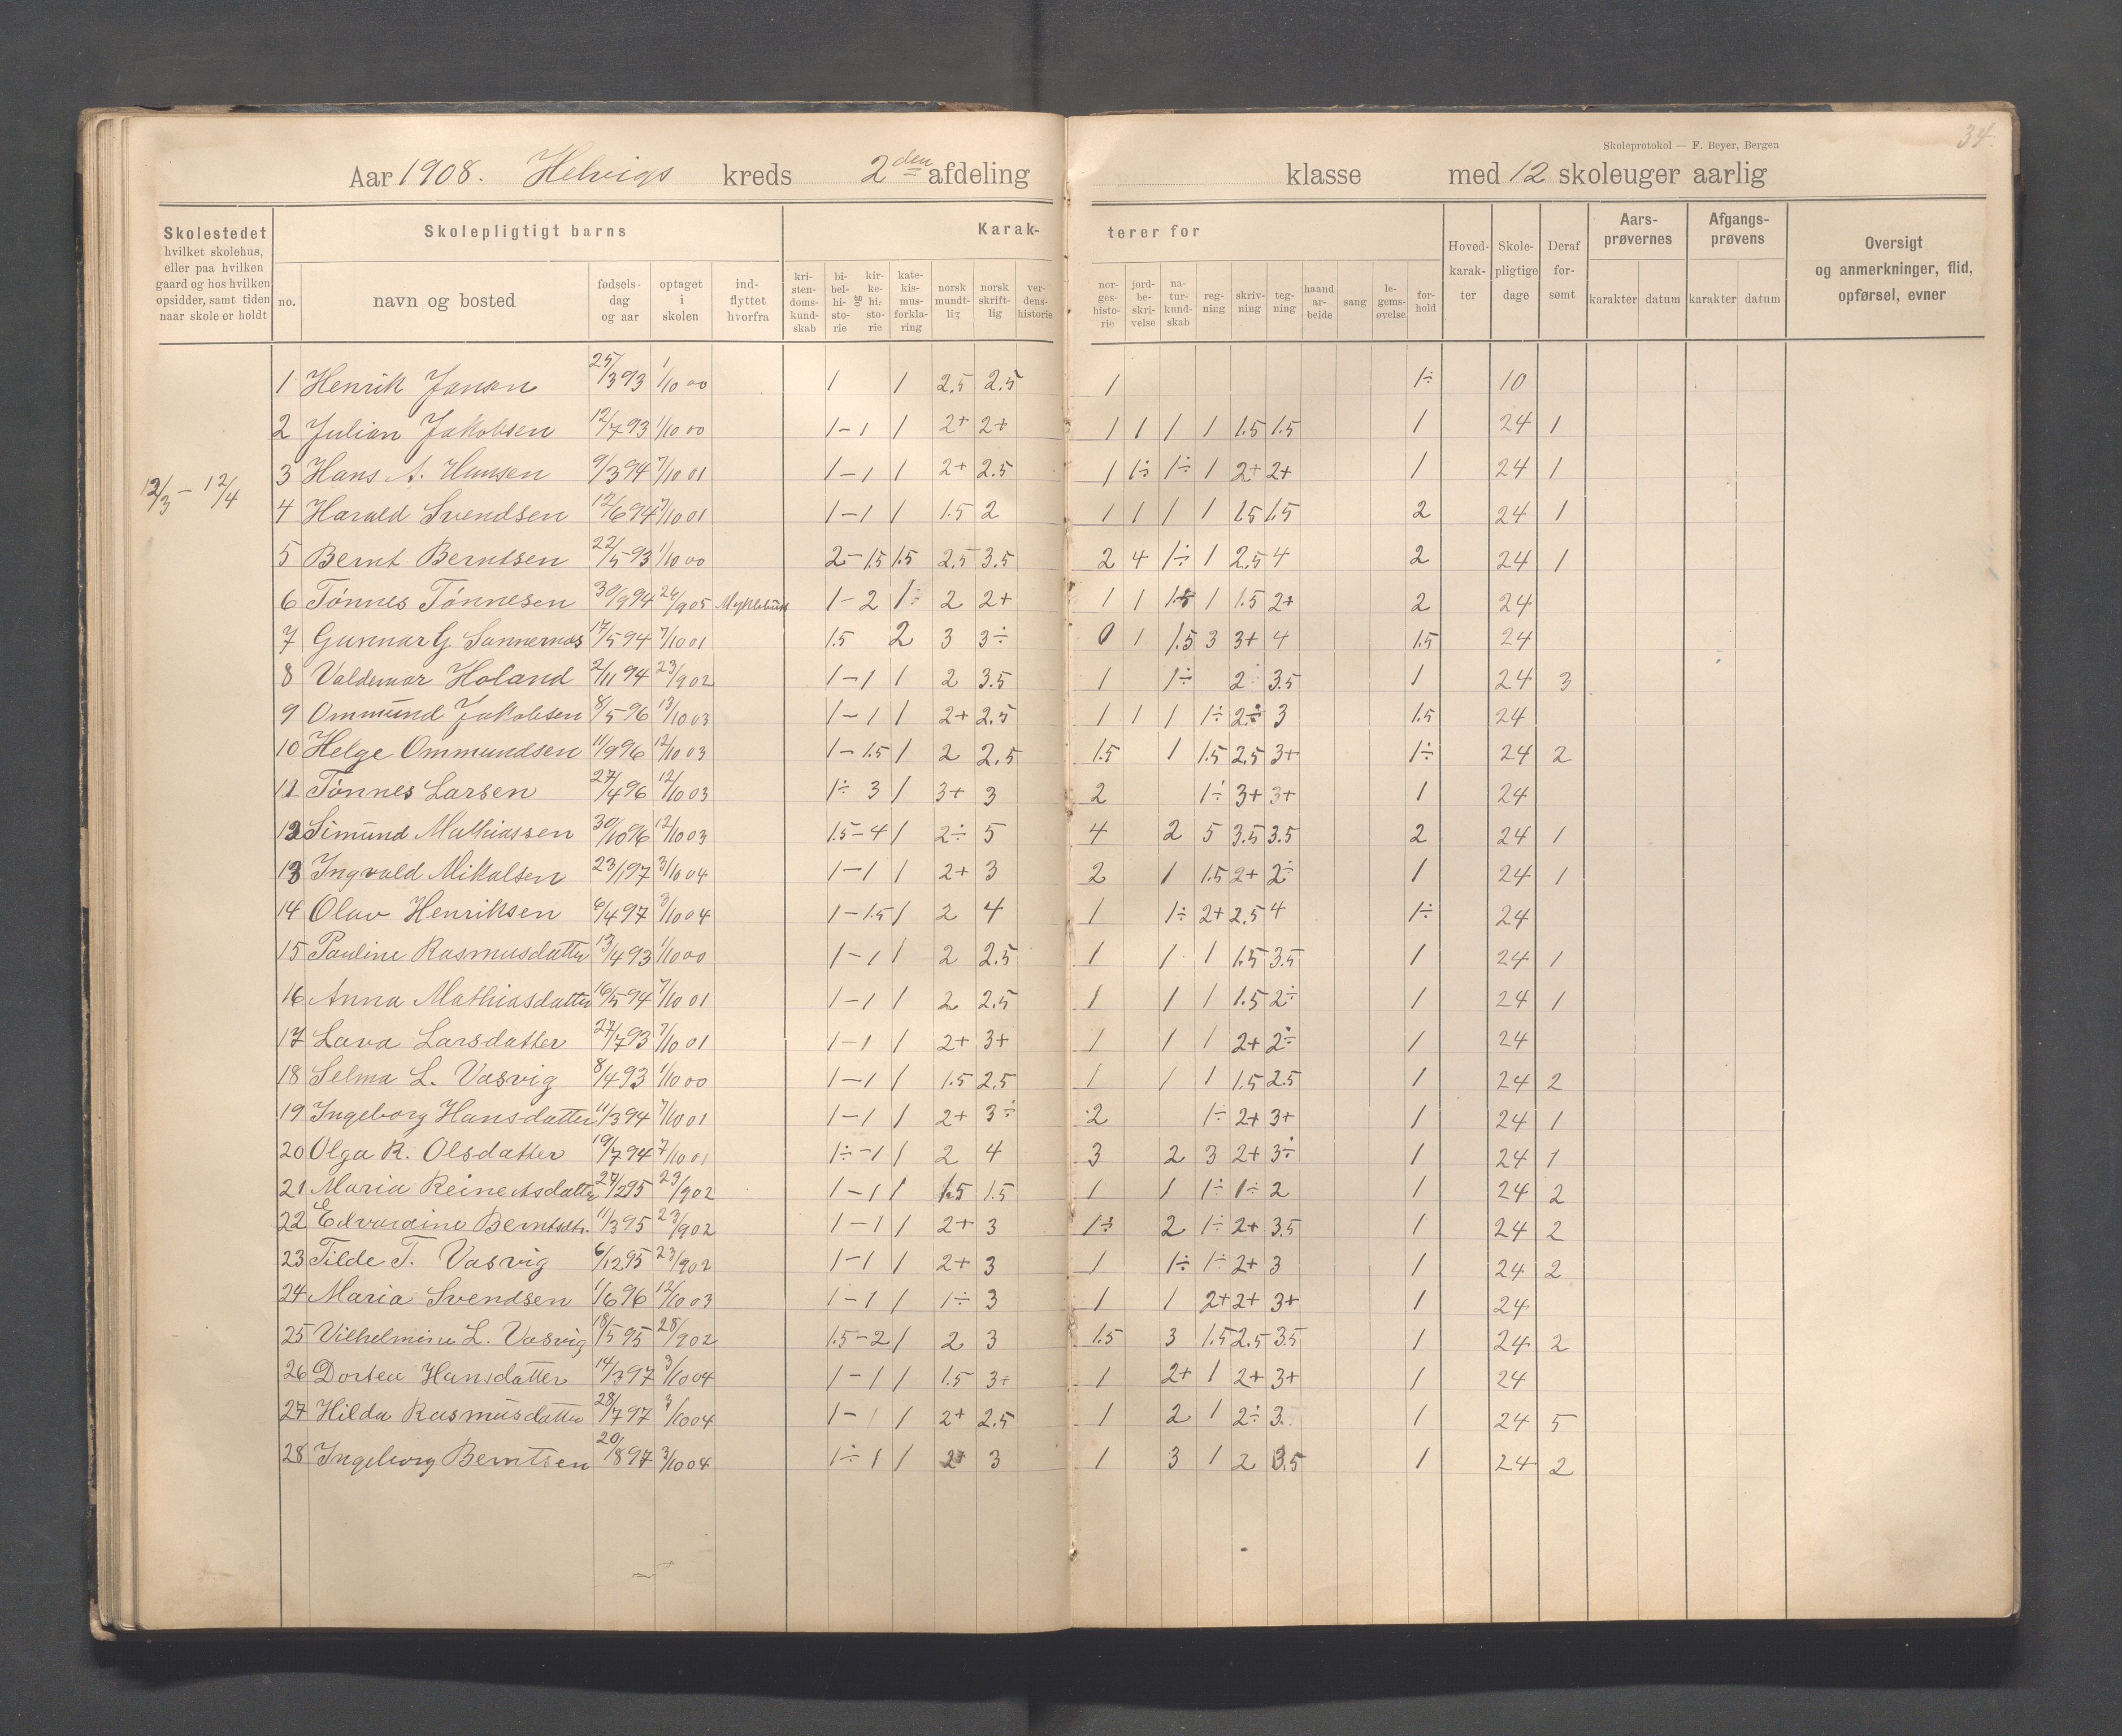 34.
Skoleprotokol — F. Beyer, Bergen
Aar 1908. Helvigs kreds 2den afdeling klasse med 12 skoleuger aarlig
Skolestedet hvilket skolehus, eller paa hvilken gaard og hos hvilken opsidder, samt tiden naar skole er holdt
Skolepligtigt barns
no. navn og bosted fødsels-dag og aar optaget i skolen ind-flyttet hvorfra
Karak-terer for
kri-sten-doms-kund-skab bi-bel-hi-sto-rie og kir-ke-hi-sto-rie kate-kis-mus-forkla-ring norsk mundt-lig norsk skrift-lig ver-dens-historie nor-ges-histo-rie jord-be-skri-velse na-tur-kund-skab reg-ning skriv-ning teg-ning haand ar-beide sang le-gems-øvelse for-hold
Hoved-karak-ter Skole-pligtige dage Deraf for-sømt
Aars-prøvernes karakter datum
Afgangs-prøvens karakter datum
Oversigt og anmerkninger, flid, opførsel, evner
12/3 – 12/4
1 Henrik Jonsen 25/3 93 1/10 00 1 1 2.5 2.5 1 1÷ 10
2 Julian Jakobsen 12/7 93 1/10 00 1 – 1 1 2+ 2+ 1 1 1 1 1.5 1.5 1 24 1
3 Hans A. Hansen 9/3 94 7/10 01 1 – 1 1 2+ 2.5 1 1÷ 1÷ 1 2+ 2+ 1 24 1
4 Harald Svendsen 12/6 94 7/10 01 1 – 1 1 1.5 2 1 1 1 1 1.5 1.5 2 24 1
5 Bernt Berntsen 22/5 93 1/10 00 2 – 1.5 1.5 2.5 3.5 2 4 1÷ 1 2.5 4 2 24 1
6 Tønnes Tønnesen 30/9 94 24/9 05 1 – 2 1÷ 2 2+ 1 1 1.5 1 1.5 2+ 2 24
7 Gunnar G. Sannernæs 17/5 94 7/10 01 1.5 2 3 3÷ 0 1 1.5 3 3+ 4 1.5 24
8 Valdemar Holand 2/11 94 23/9 02 1 – 1 1 2 3.5 1 1÷ 2 3.5 1 24 3
9 Ommund Jakobsen 8/5 96 13/10 03 1 – 1 1 2+ 2.5 1 1 1 1÷ 2÷ 3 1.5 24
10 Helge Ommundsen 11/9 96 12/10 03 1 – 1.5 1 2 2.5 1.5 1 1.5 2.5 3+ 1÷ 24 2
11 Tønnes Larsen 27/4 96 12/10 03 1÷ 3 1 3+ 3 2 1÷ 3+ 3+ 1 24
12 Simund Mathiassen 30/10 96 12/10 03 1.5 – 4 1 2÷ 5 4 2 5 3.5 3.5 2 24 1
13 Ingvald Mikalsen 23/1 97 3/10 04 1 – 1 1 2+ 3 2 1 1.5 2+ 2÷ 1 24 1
14 Olav Henriksen 6/4 97 3/10 04 1 – 1.5 1 2 4 1 1÷ 2+ 2.5 4 1÷ 24
15 Pauline Rasmusdatter 13/4 93 1/10 00 1 – 1 1 2 2.5 1 1 1 1.5 3.5 1 24 1
16 Anna Mathiasdatter 16/5 94 7/10 01 1 – 1 1 2 2.5 1 1 1 1.5 2÷ 1 24 1
17 Lava Larsdatter 27/7 93 7/10 01 1 – 1 1 2+ 3+ 1 1 1 2+ 2÷ 1 24
18 Selma L. Vasvig 8/4 93 1/10 00 1 – 1 1 1.5 2.5 1 1 1 1.5 2.5 1 24 2
19 Ingeborg Hansdatter 11/3 94 7/10 01 1 – 1 1 2+ 3÷ 2 1÷ 2+ 3+ 1 24 1
20 Olga R. Olsdatter 19/7 94 7/10 01 1÷ – 1 1 2 4 3 2 3 2+ 3÷ 1 24 1
21 Maria Reinertsdatter 27/2 95 23/9 02 1 – 1 1 1.5 1.5 1 1 1÷ 1÷ 2 1 24 2
22 Edvardine Berntsdtr. 11/3 95 23/9 02 1 – 1 1 2+ 3 1÷ 2 1÷ 2+ 3.5 1 24 2
23 Tilde T. Vasvig 6/12 95 23/9 02 1 – 1 1 2+ 3 1 1÷ 1÷ 2+ 3 1 24 2
24 Maria Svendsen 1/6 96 12/10 03 1 – 1 1 1÷ 3 1 1 2+ 2+ 3+ 1 24
25 Vilhelmine L. Vasvig 18/5 95 28/9 02 1.5 – 2 1 2 3 1.5 3 1.5 2.5 3.5 1 24 2
26 Dortea Hansdatter 14/3 97 3/10 04 1 – 1 1 1.5 3+ 1 2+ 1 2+ 3+ 1 24
27 Hilda Rasmusdatter 28/7 97 3/10 04 1 – 1 1 2+ 2.5 1 2 1 2÷ 3. 1 24 5
28 Ingeborg Berntsen 20/8 97 3/10 04 1÷ 1 1 2+ 3 1 3 1 2 3.5 1 24 2